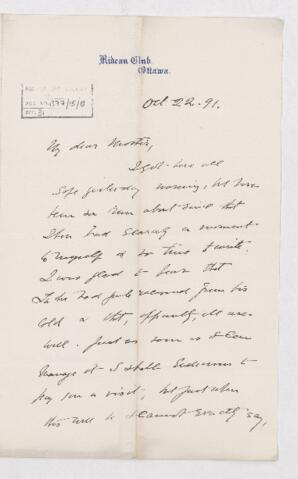 Rideau Club.
Ottawa.
Oct 22. 91.
My dear Mother,
I got here all
safe yesterday morning, but have
been so run about since that
I have had scarcely a moment
to myself or to write
I was glad to hear that
had quite recovered from his
cold & that, apparently, all was
well. Just as soon as I can
manage it I shall endeavour to
pay you a visit, but just when
this will be I cannot exactly say,